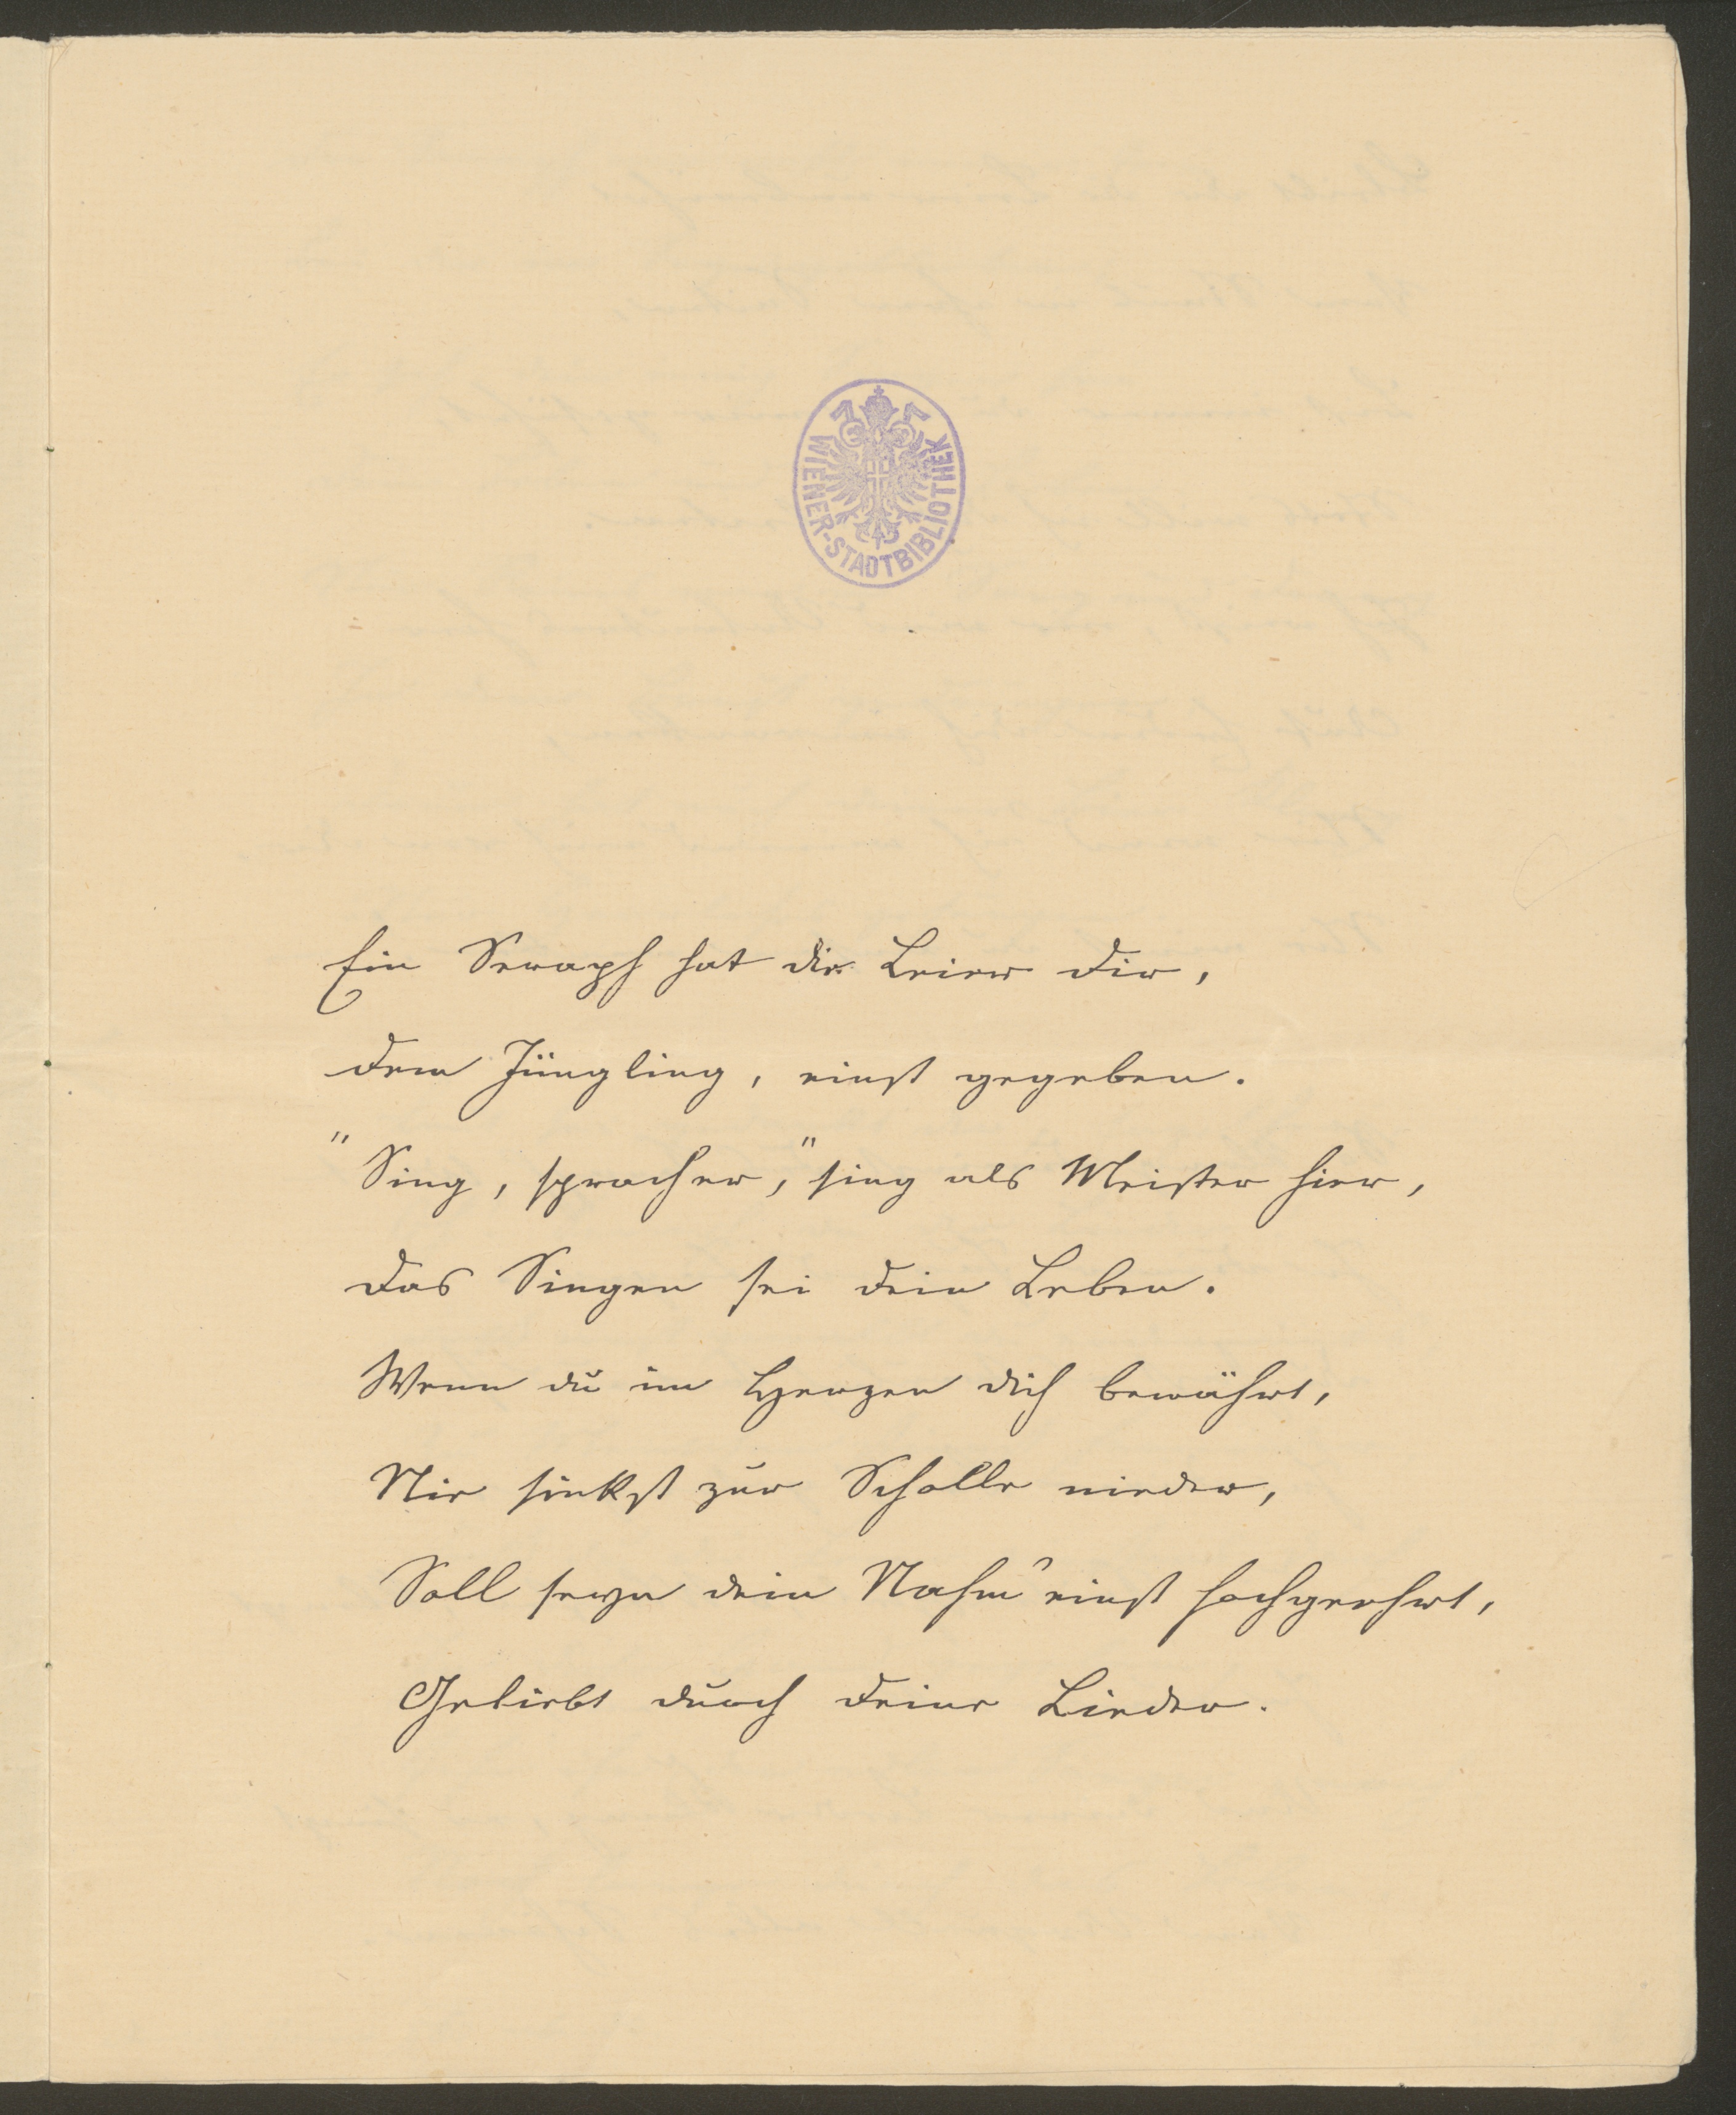 WIENER-STADTBIBLIOTHEK
Ein Seraph hat die Leier dir,
dem Jüngling, einst gegeben.
"Sing, sprach er, "sing als Meister hier,
das Singen sei dein Leben.
Wenn du im Herzen dich bewährt,
Nie sinkst zur Scholle nieder,
Soll seyn dein Nahm' einst hochgeehrt,
Geliebt durch deine Lieder.